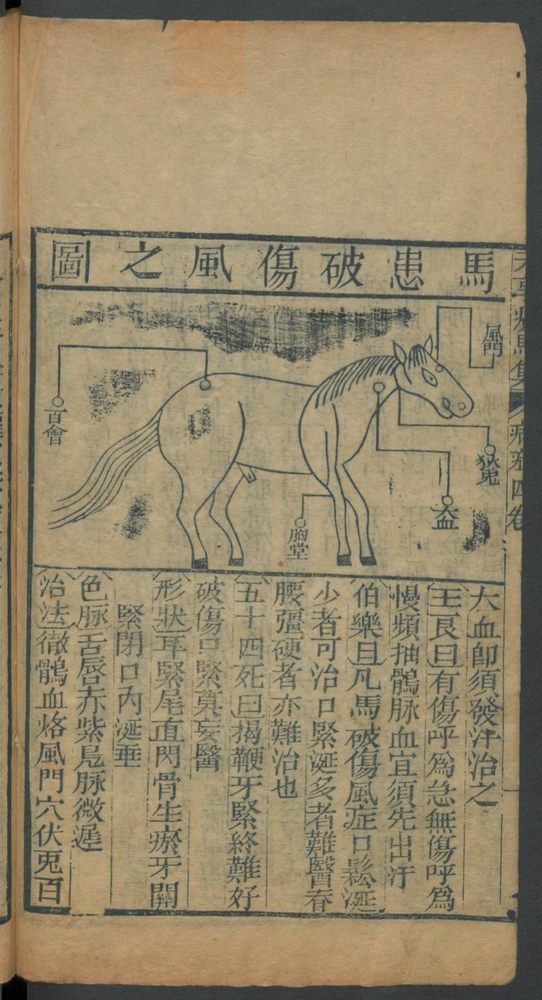 馬患破傷風之圖
風門
伏兎
百會
胸堂
大血卽須發汗治之
王良曰有傷呼爲急無傷呼爲
慢頻抽鶻脉血宜須先出汗
伯樂曰凡馬破傷風症口鬆涎
少者可治口緊涎多者難醫脊
腰彊硬者亦難治也
五十四死曰揭鞭牙緊終難好
破傷口緊莫妄醫
形狀耳緊尾直閃骨生瘀牙關
緊閉口內涎垂
色脉舌唇赤紫鳬脉微遲
治法徹鶻血烙風門穴伏兎百